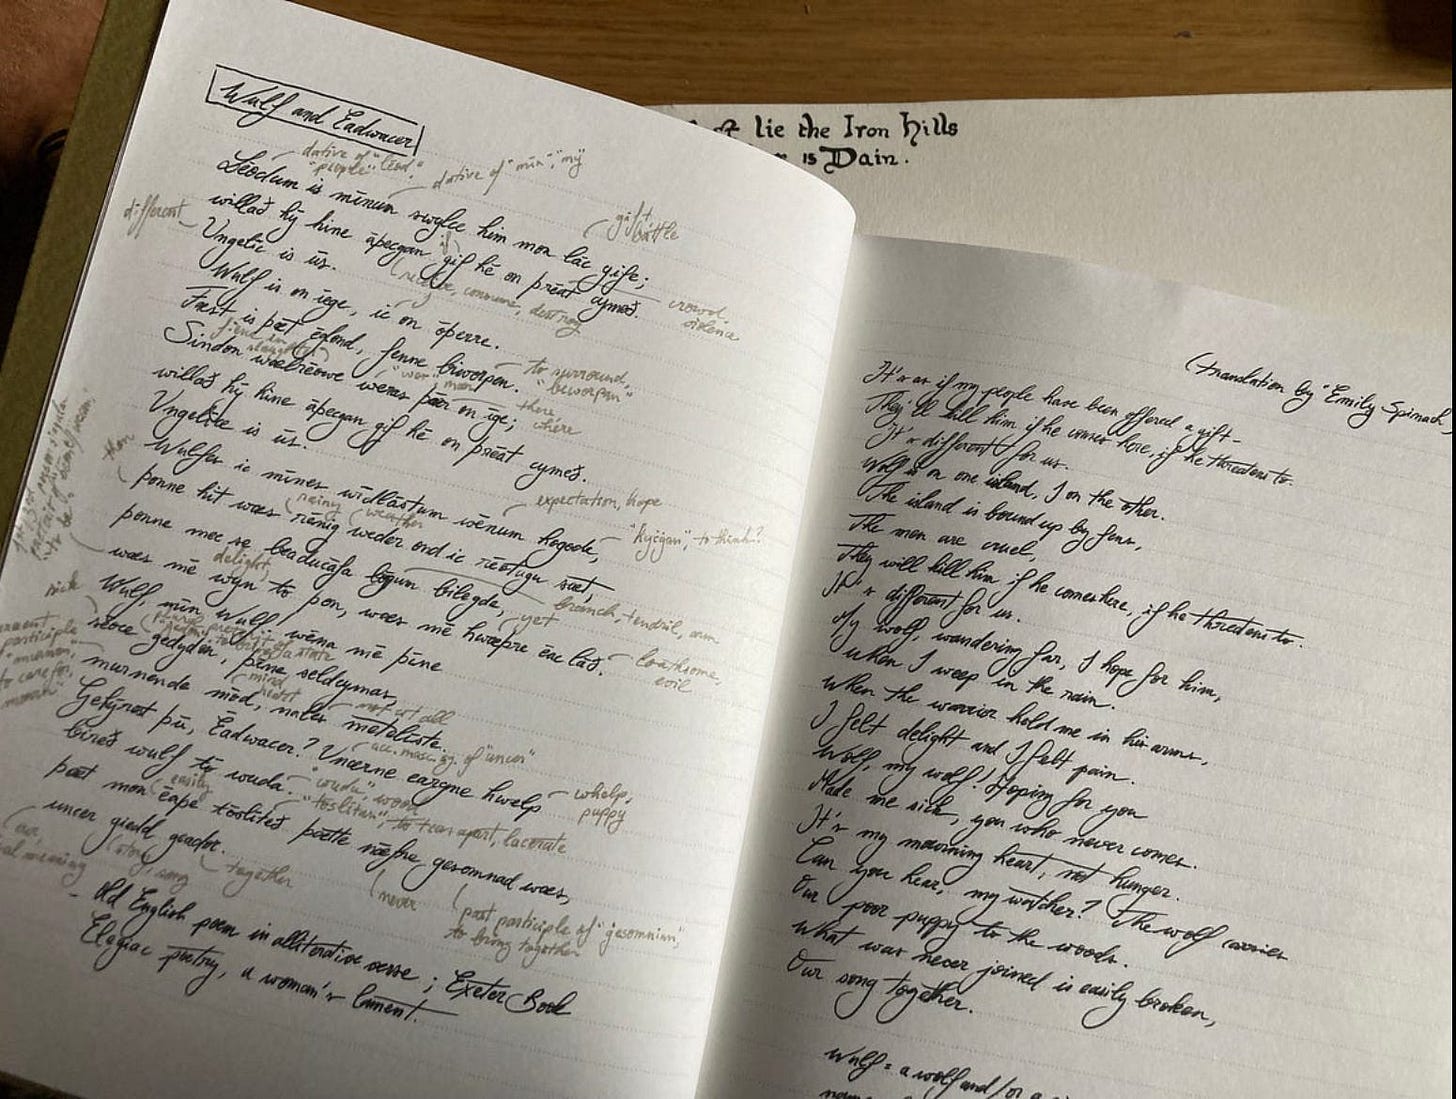 Wulf and Eadwacer
dative of "lēod", "people"
dative of "mīn", "my"
Lēodum is mīnum swylce him mon lāc gife;
gift
battle
willað hȳ hine āþecgan gif hē on þrēat cymeð.
if
different
receive, consume, destroy
crowd, violence
Ungelīc is ūs.
Wulf is on īege, ic on ōþerre.
Fæst is þæt ēglond, fenne biworpen.
to surround, "beworpan"
Sindon wælrēowe weras þǣr on īge;
"wer", man
there
where
willað hȳ hine āþecgan gif hē on þrēat cymeð.
Ungelīce is ūs.
Wulfes ic mīnes wīdlāstum wēnum hogode,
expectation, hope
"hycgan", to think?
then
þonne hit wæs rēnig weder ond ic rēotugu sæt,
rainy
weather
þonne mec se beaducāfa bōgum bilegde,
branch, tendril, arm
wæs mē wyn tō þon, wæs mē hwæþre ēac lāð.
delight
yet
loathsome, evil
Wulf, mīn Wulf, wēna mē þīne
sick
sēoce gedydon, þīne seldcymas,
murnende mōd, nales metelīste.
mind
not at all
Gehȳrest þū, Ēadwacer? Uncerne eargne hwelp
acc. masc. sg. of "uncer"
whelp, puppy
bireð wulf tō wuda.
"wudu", wood
þæt mon ēaþe tōslīteð þætte nǣfre gesomnad wæs,
easily
"tōslītan", to tear apart, lacerate
uncer giedd geador.
story, song
together
never
past participle of "gesomnian", to bring together
- Old English poem in alliterative verse; Exeter Book
Elegiac poetry, a woman's lament.
lie the Iron Hills
is Dain.
(translation by "Emily Spinach"
It's as if my people have been offered a gift-
They'll kill him if he comes here, if he threatens to.
It's different for us.
Wolf is on one island, I on the other.
The island is bound up by fens,
The men are cruel,
They will kill him if he comes here, if he threatens to.
It's different for us.
My wolf, wandering far, I hope for him,
when I weep in the rain.
When the warrior held me in his arms,
I felt delight and I felt pain.
Wolf, my wolf! Hoping for you
Made me sick, you who never comes.
It's my mourning heart, not hunger.
Can you hear, my watcher? The wolf carries
Our poor puppy to the woods.
What was never joined is easily broken,
Our song together.
Wulf = a wolf and/or a